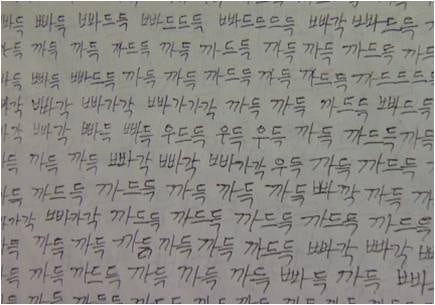 빠득 빠득 빠드득 빠드드득 빠각 빠드득
까득 까득 까드득 까득 까드득 까득 까드득 까드
빠득 빠드득 까득 까드득 까득 까드득 까드드드
빠각 빠가각 빠가가각 까득 까득 까드득 빠드득
빠각 빠득 빠득 우드득 우득 우득 까득 까드득 까득
까득 까득 빠각 빠각 빠가각 우득 까득 까드득
까드득 까드득 까득 까드득 까득 빠깍 까득
빠가각 까드득 까드득 까드득 까드득 까드득
까득 까득 까득 까득 까득 까드득 빠각 빠각
까득 까드득 까득 까득 까득 빠득 까득